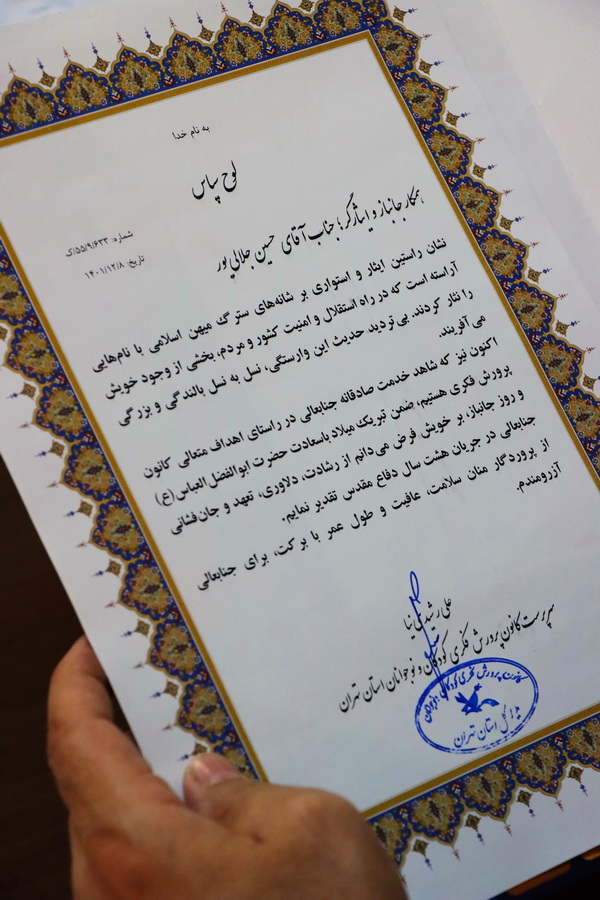 به نام خدا
لوح سپاس
شماره: ۵۵/۹/۶۳۳/ک
تاریخ: ۱۴۰۱/۱۲/۸
همکار جانباز و ایثارگر؛ جناب آقای حسین جلالی پور
نشان راستین ایثار و استواری بر شانه‌های سترگ میهن اسلامی با نام‌هایی
آراسته است که در راه استقلال و امنیت کشور و مردم، بخشی از وجود خویش
را نثار کردند. بی‌تردید، حدیث این وارستگی، نسل به نسل بالندگی و بزرگی
می‌آفریند.
اکنون نیز که شاهد خدمت صادقانه جنابعالی در راستای اهداف متعالی کانون
پرورش فکری هستیم، ضمن تبریک میلاد باسعادت حضرت ابوالفضل‌العباس(ع)
و روز جانباز، بر خویش فرض می‌دانم از رشادت، دلاوری، تعهد و جان‌فشانی
جنابعالی در جریان هشت سال دفاع مقدس تقدیر نمایم.
از پروردگار منان سلامت، عافیت و طول عمر با برکت، برای جنابعالی
آرزومندم.
علی رشیدی نیا
سرپرست کانون پرورش فکری کودکان و نوجوانان استان تهران
کانون پرورش فکری کودکان و نوجوانان
کل استان تهران